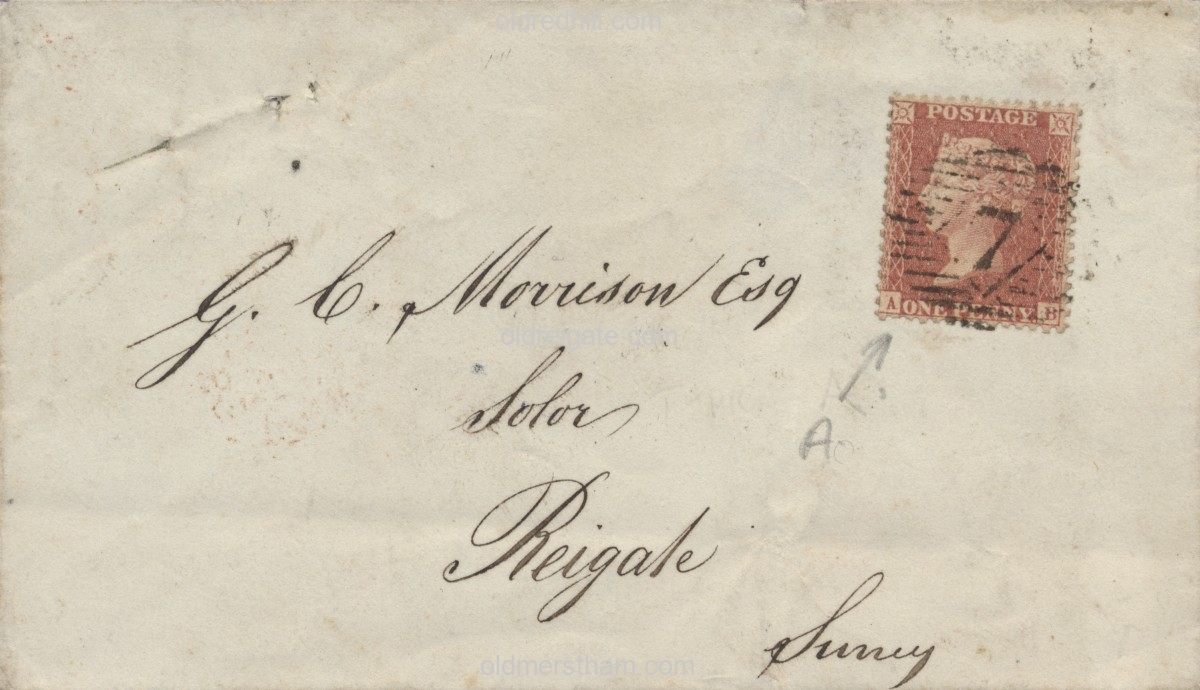 oldredhill.com
POSTAGE
7
A ONE PENNY B
G. C. Morrison Esq
oldreigate.com
Solor
A
Reigate
Surrey
oldmerstham.com